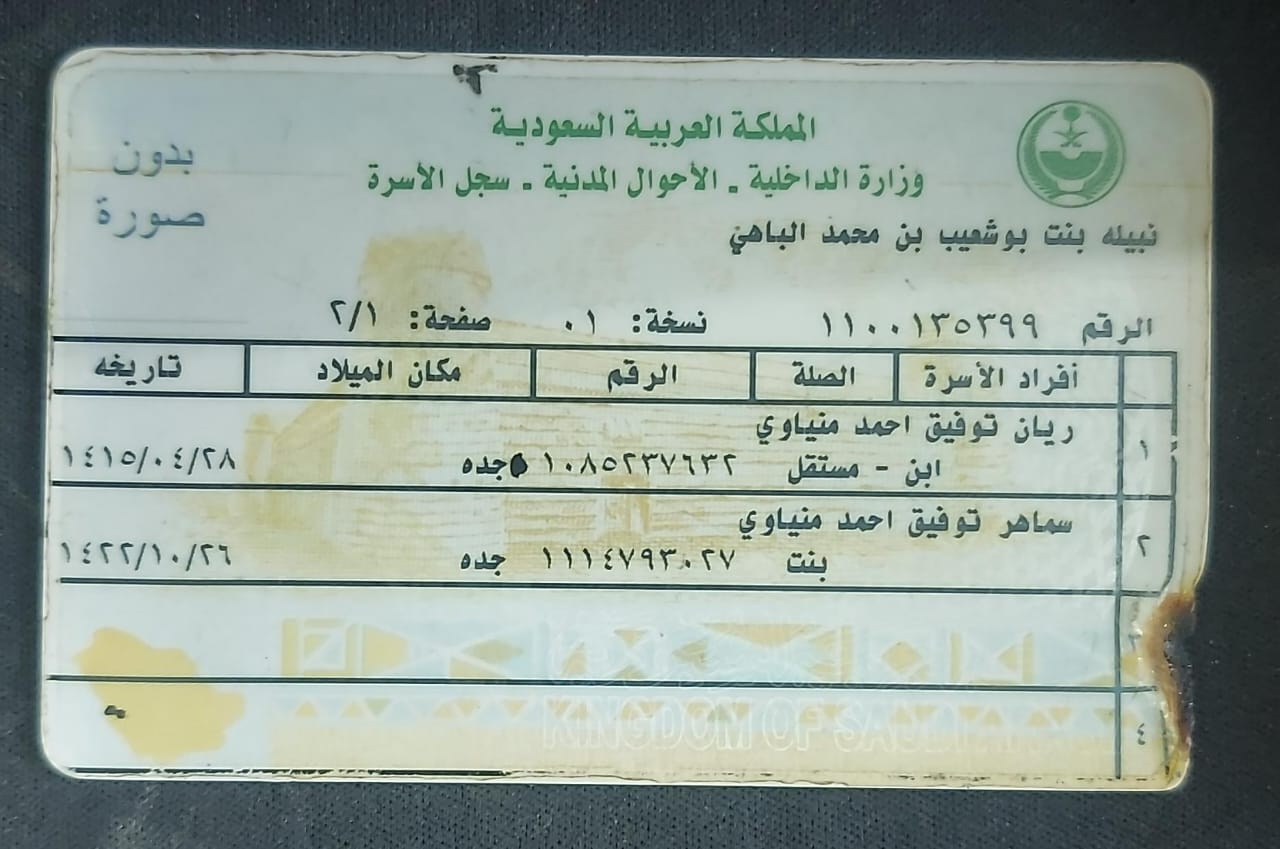 المملكة العربية السعودية
وزارة الداخلية ـ الأحوال المدنية ـ سجل الأسرة
بدون
صورة
نبيله بنت بوشعيب بن محمد الباهي
الرقم ١١٠٠١٣٥٣٩٩ نسخة: ٠١ صفحة: ٢/١
أفراد الأسرة الصلة الرقم مكان الميلاد تاريخه
١ ريان توفيق احمد منياوي
ابن - مستقل ١٠٨٥٢٣٧٦٣٢ جده ١٤١٥/٠٤/٢٨
٢ سماهر توفيق احمد منياوي
بنت ١١١٤٧٩٣٠٢٧ جده ١٤٢٢/١٠/٢٦
٣
٤
KINGDOM OF SAUDI